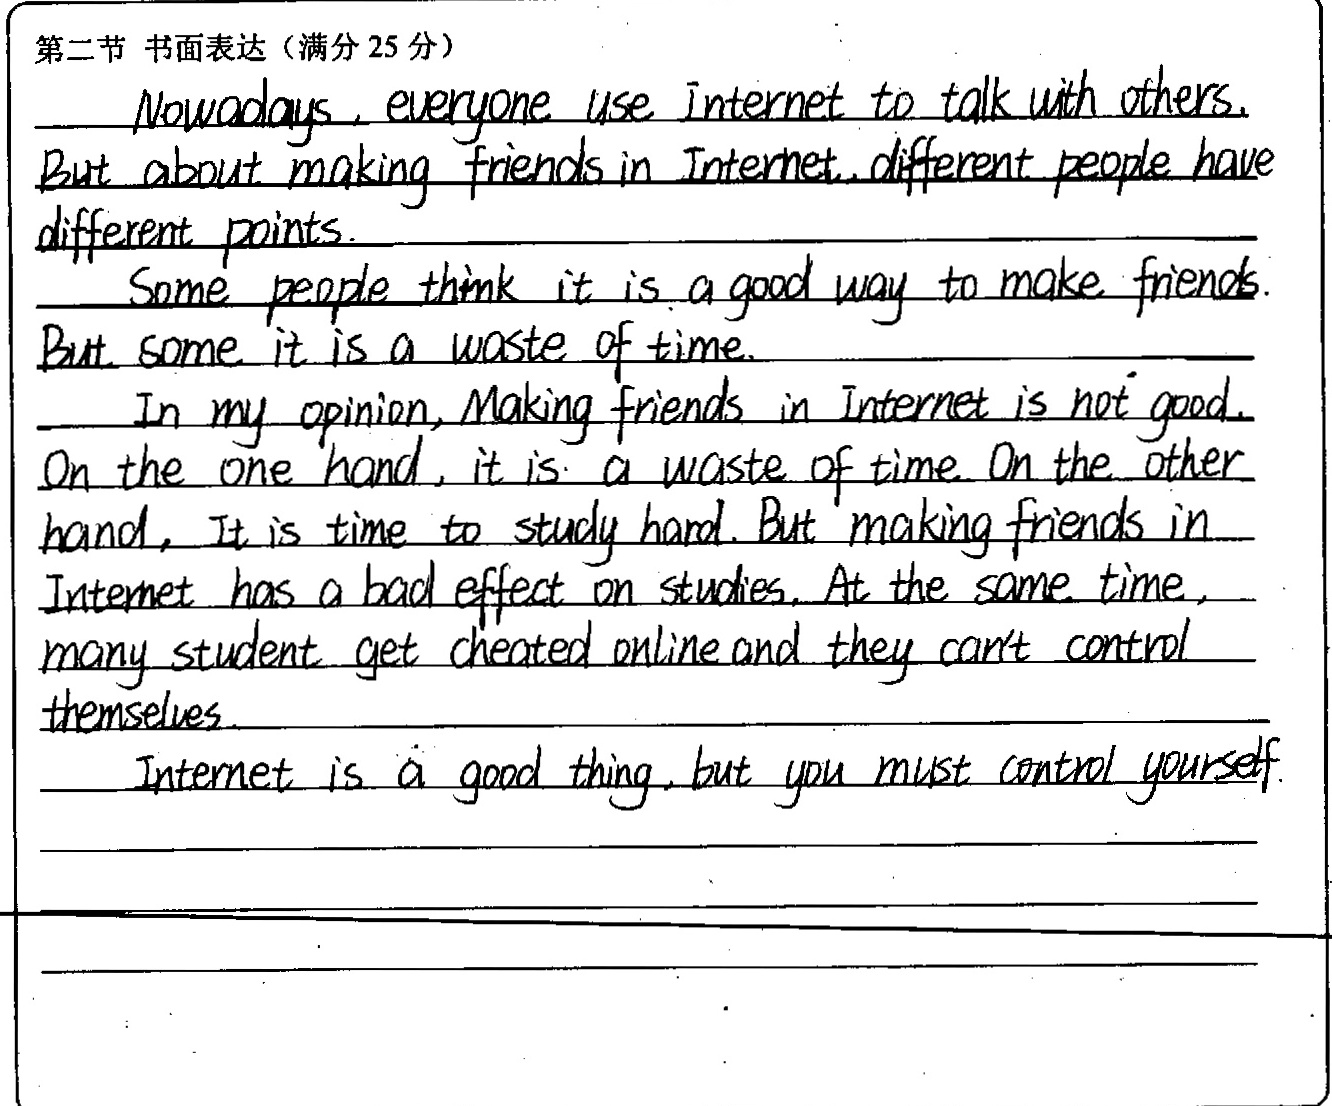 第二节 书面表达（满分 25 分）
Nowadays, everyone use Internet to talk with others.
But about making friends in Internet, different people have
different points.
Some people think it is a good way to make friends.
But some it is a waste of time.
In my opinion, Making friends in Internet is not good.
On the one hand, it is a waste of time. On the other
hand, It is time to study hard. But making friends in
Internet has a bad effect on studies. At the same time,
many student get cheated online and they can't control
themselves.
Internet is a good thing, but you must control yourself.